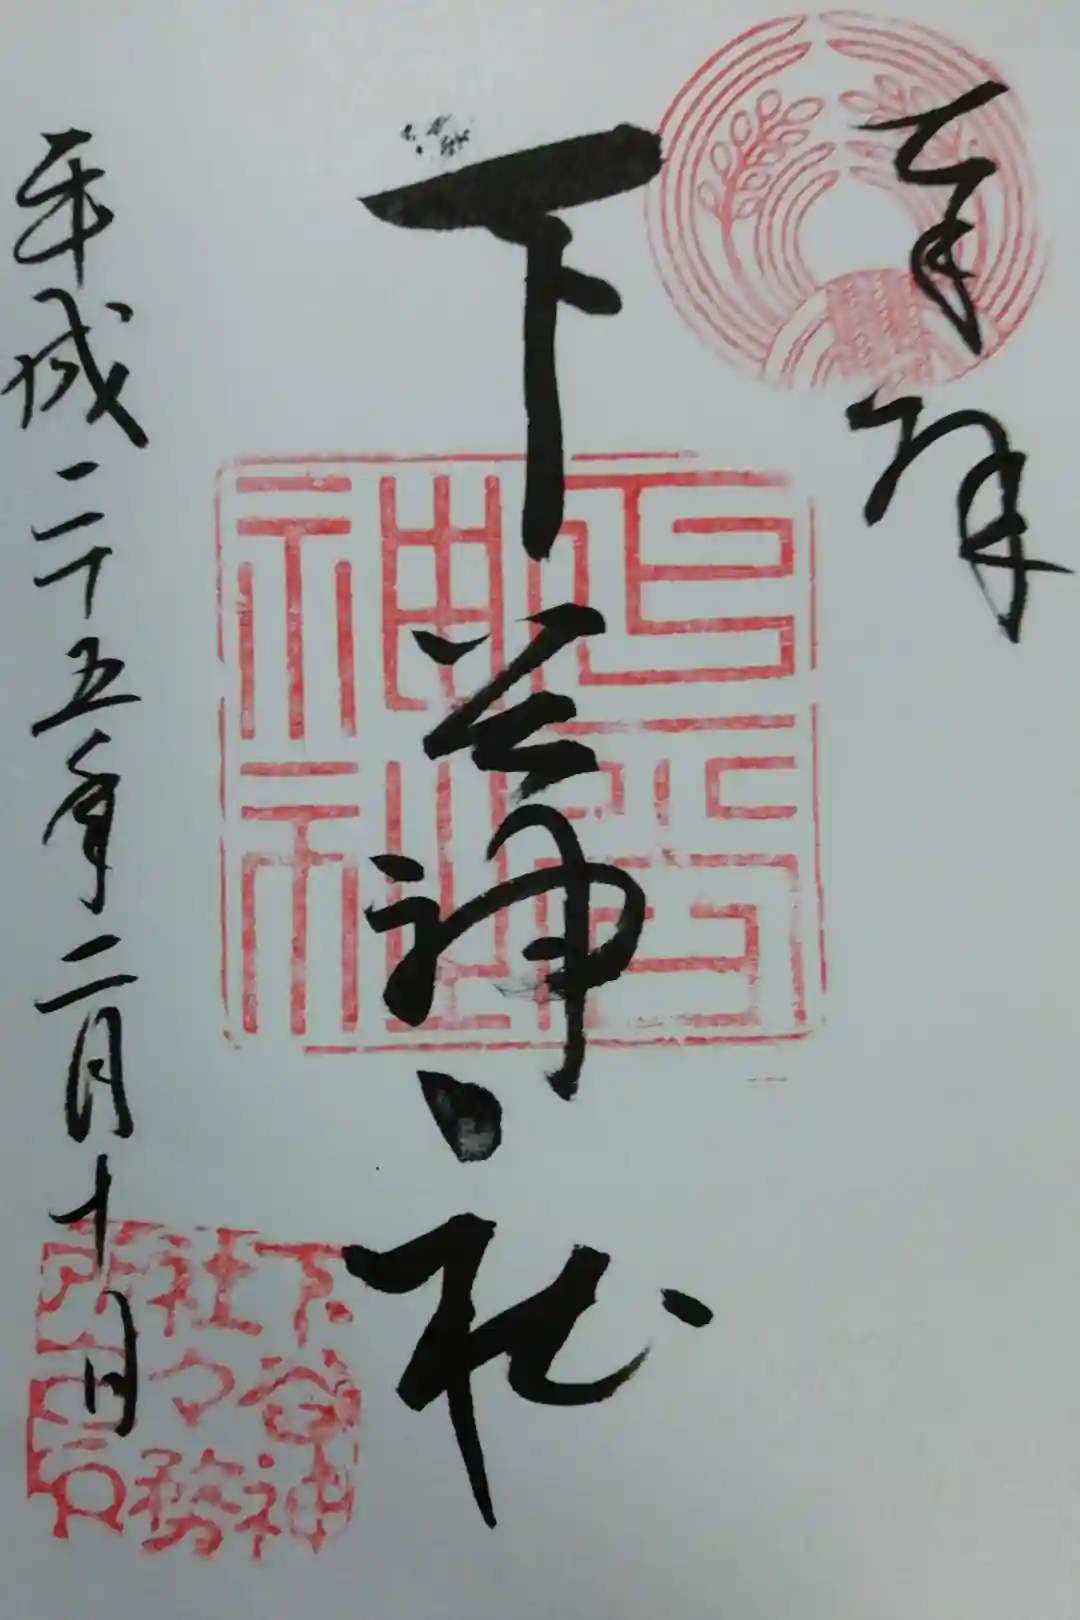 奉拝
下谷神社
下谷神社
平成二十五年二月十日
下谷神
社々務
所之印